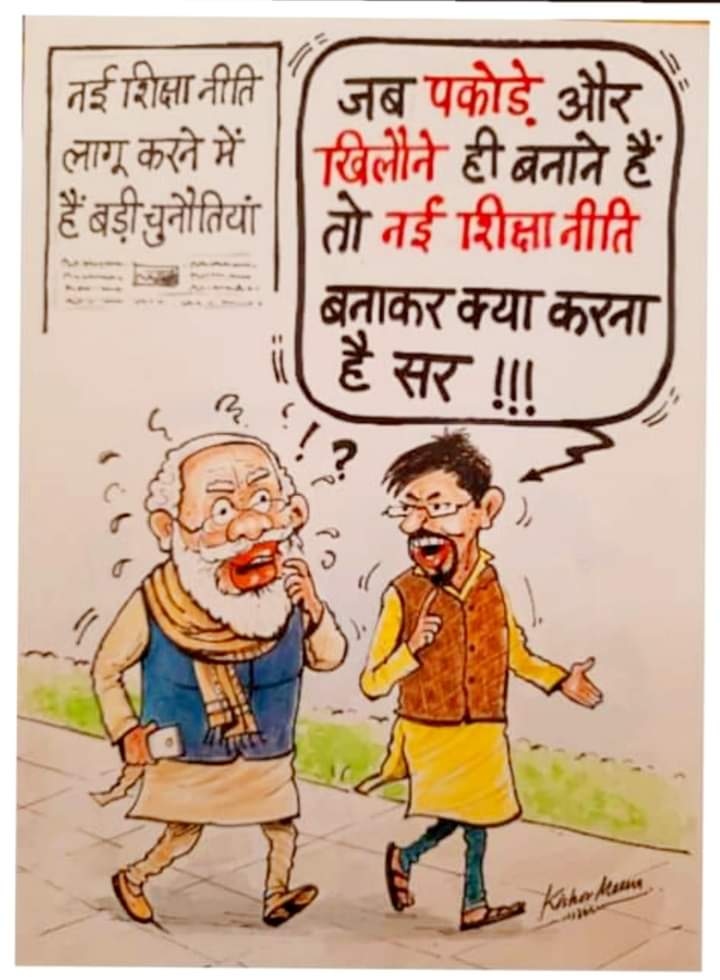 नई शिक्षा नीति
लागू करने में
हैं बड़ी चुनौतियां
जब पकोडे़ और
खिलौने ही बनाने हैं
तो नई शिक्षा नीति
बनाकर क्या करना
है सर !!!
! ?